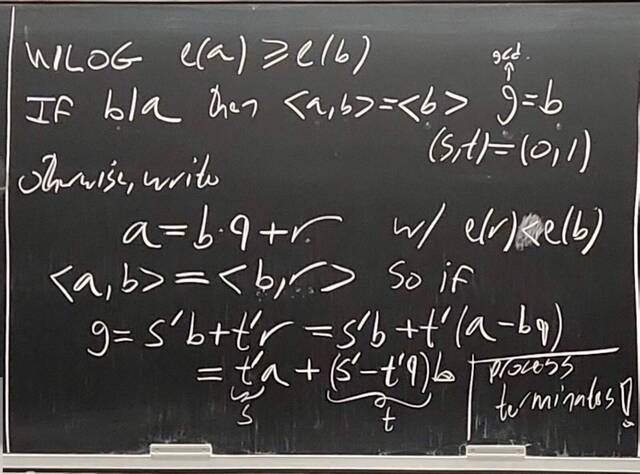 WLOG e(a) ≥ e(b)
gcd
↑
If b|a then <a,b> = <b> g = b
(s,t) = (0,1)
otherwise, write
a = b·q + r w/ e(r) < e(b)
<a,b> = <b,r> So if
g = s'b + t'r = s'b + t'(a - bq)
= t'a + (s' - t'q)b
s t
process
terminates!